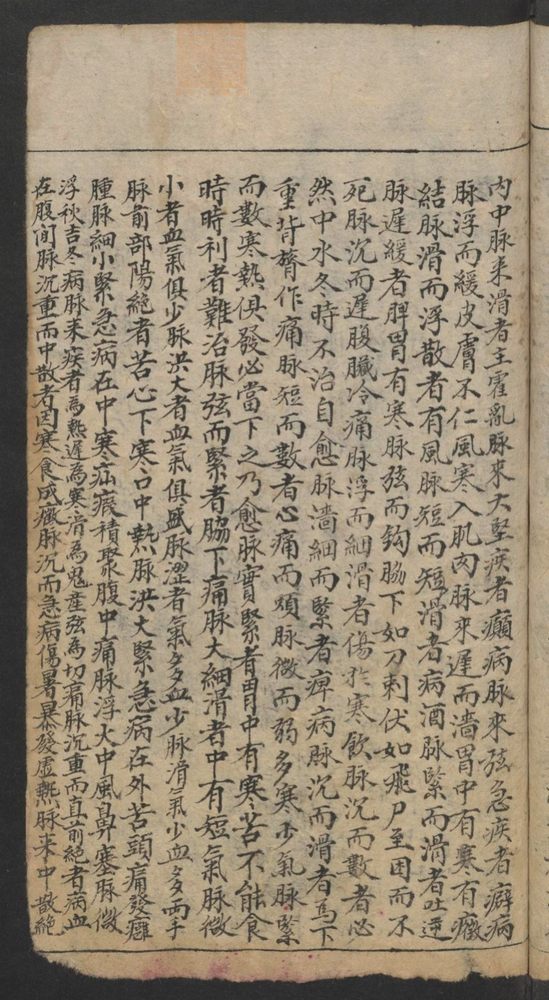 內中脉来滑者主霍亂脉來大堅疾者癲病脉來弦急疾者癖病
脉浮而緩皮膚不仁風寒入肌肉脉來遲而濇胃中有寒有癥
結脉滑而浮散者有風脉短而短滑者病酒脉緊而滑者吐逆
脉遲緩者脾胃有寒脉弦而鈎脇下如刀刺伏如飛尸至困而不
死脉沉而遲腹臟冷痛脉浮而細滑者傷於寒飲脉沉而數者必
然中水冬時不治自愈脉濇細而緊者痺病脉沉而滑者為下
重背膂作痛脉短而數者心痛而煩脉微而弱多寒少氣脉緊
而數寒熱俱發必當下之乃愈脉實緊者胃中有寒苦不能食
時時利者難治脉弦而緊者脇下痛脉大細滑者中有短氣脉微
小者血氣俱少脉洪大者血氣俱盛脉澀者氣多血少脉滑氣少血多兩手
脉前部陽絕者苦心下寒口中熱脉洪大緊急病在外苦頭痛發癰
腫脉細小緊急病在中寒疝瘕積聚腹中痛脉浮大中風鼻塞脉微
浮秋吉冬病脉来疾者為熱遲為寒滑為鬼疰弦為切痛脉沉重而直前絕者病血
在腹间脉沉重而中散者因寒食成癥脉沉而急病傷暑暴發虛熱脉来中散絕